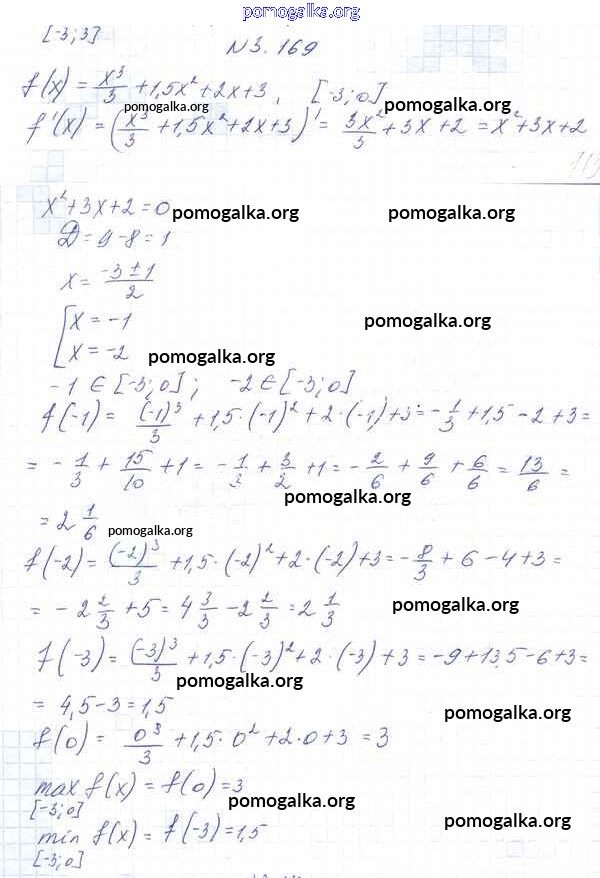 pomogalka.org
[-3;3]
N3.169
f(x) = x³/3 + 1,5x² + 2x + 3, [-3;0]
pomogalka.org pomogalka.org
f'(x) = (x³/3 + 1,5x² + 2x + 3)' = 3x²/3 + 3x + 2 = x² + 3x + 2
113
x² + 3x + 2 = 0
pomogalka.org pomogalka.org
D = 9 - 8 = 1
x = (-3 ± 1)/2
[x = -1
pomogalka.org
[x = -2
pomogalka.org
-1 ∈ [-3;0]; -2 ∈ [-3;0]
f(-1) = (-1)³/3 + 1,5·(-1)² + 2·(-1) + 3 = -1/3 + 1,5 - 2 + 3 =
= -1/3 + 15/10 + 1 = -1/3 + 3/2 + 1 = -2/6 + 9/6 + 6/6 = 13/6 =
pomogalka.org
= 2 1/6
pomogalka.org
f(-2) = (-2)³/3 + 1,5·(-2)² + 2·(-2) + 3 = -8/3 + 6 - 4 + 3 =
= -2 2/3 + 5 = 4 3/3 - 2 2/3 = 2 1/3
pomogalka.org
f(-3) = (-3)³/3 + 1,5·(-3)² + 2·(-3) + 3 = -9 + 13,5 - 6 + 3 =
pomogalka.org
= 4,5 - 3 = 1,5
pomogalka.org
f(0) = 0³/3 + 1,5·0² + 2·0 + 3 = 3
max f(x) = f(0) = 3
[-3;0]
pomogalka.org
min f(x) = f(-3) = 1,5
pomogalka.org
[-3;0]